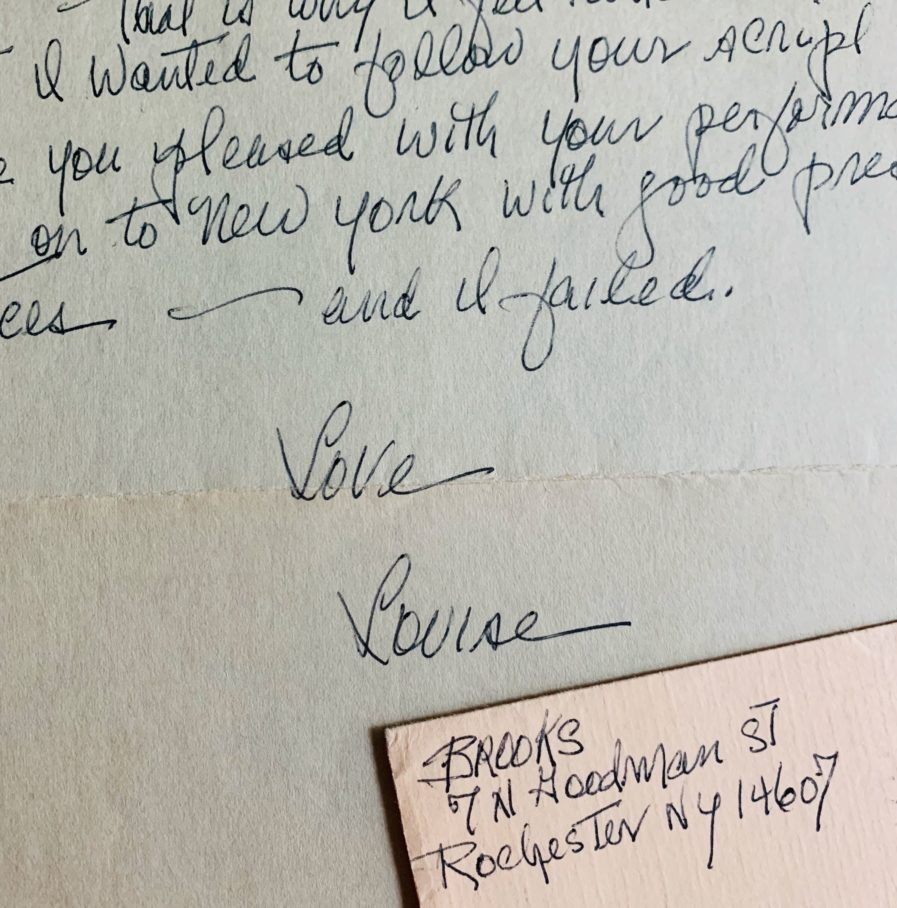 That is why I
I wanted to follow your script
you pleased with your performa
on to New York with good pres
ces — and I failed.
Love
Louise
BROOKS
7 N Goodman ST
Rochester NY 14607